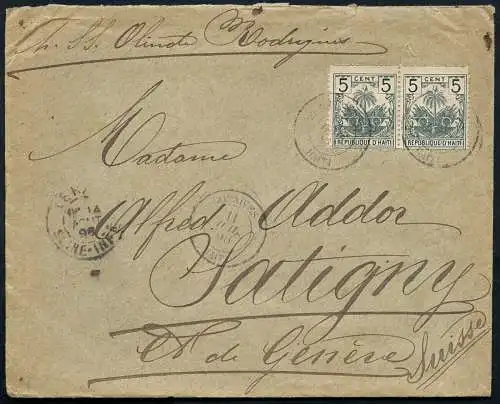 Olinde Rodrigues
5 CENT 5 5 CENT 5
REPUBLIQUE D'HAITI REPUBLIQUE D'HAITI
Madame
Alfred Addor
Satigny
Ct de Genève
Suisse
11
14
96